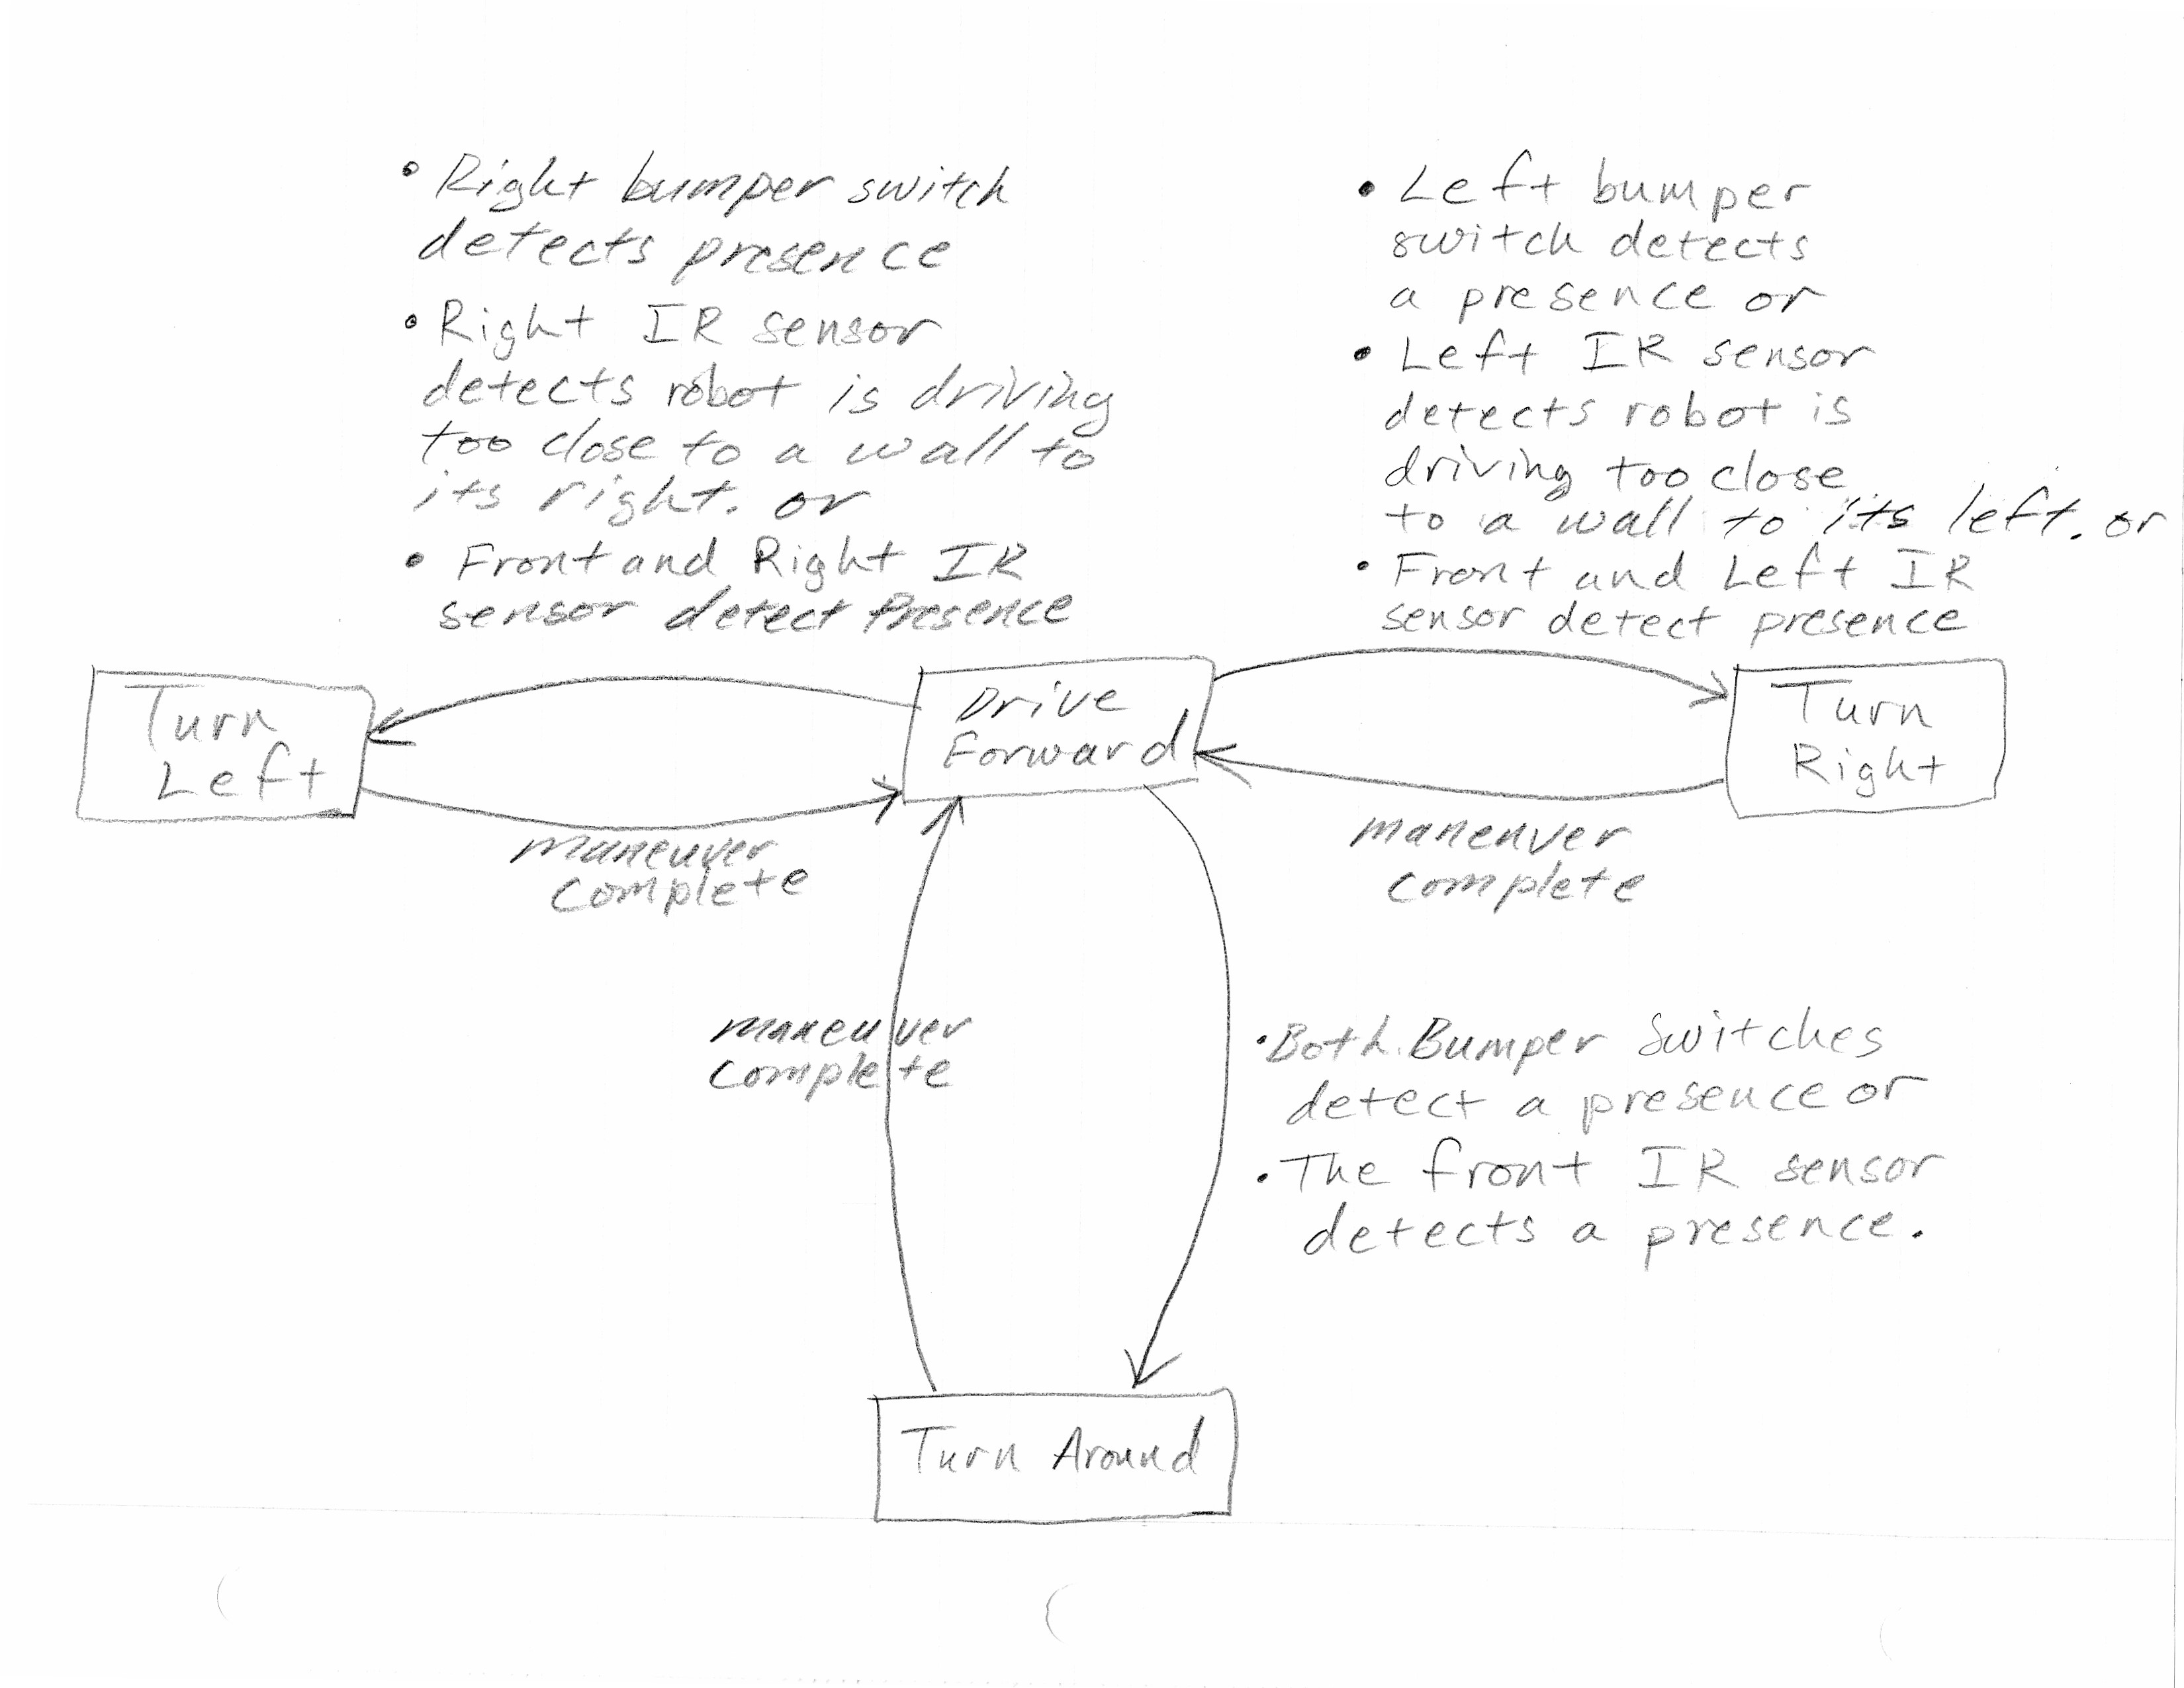 • Right bumper switch
detects presence
• Right IR sensor
detects robot is driving
too close to a wall to
its right. or
• Front and Right IR
sensor detect Presence
• Left bumper
switch detects
a presence or
• Left IR sensor
detects robot is
driving too close
to a wall to its left. or
• Front and Left IR
sensor detect presence
Turn
Left
Drive
Forward
Turn
Right
maneuver
complete
maneuver
complete
maneuver
complete
• Both Bumper Switches
detect a presence or
• The front IR sensor
detects a presence.
Turn Around